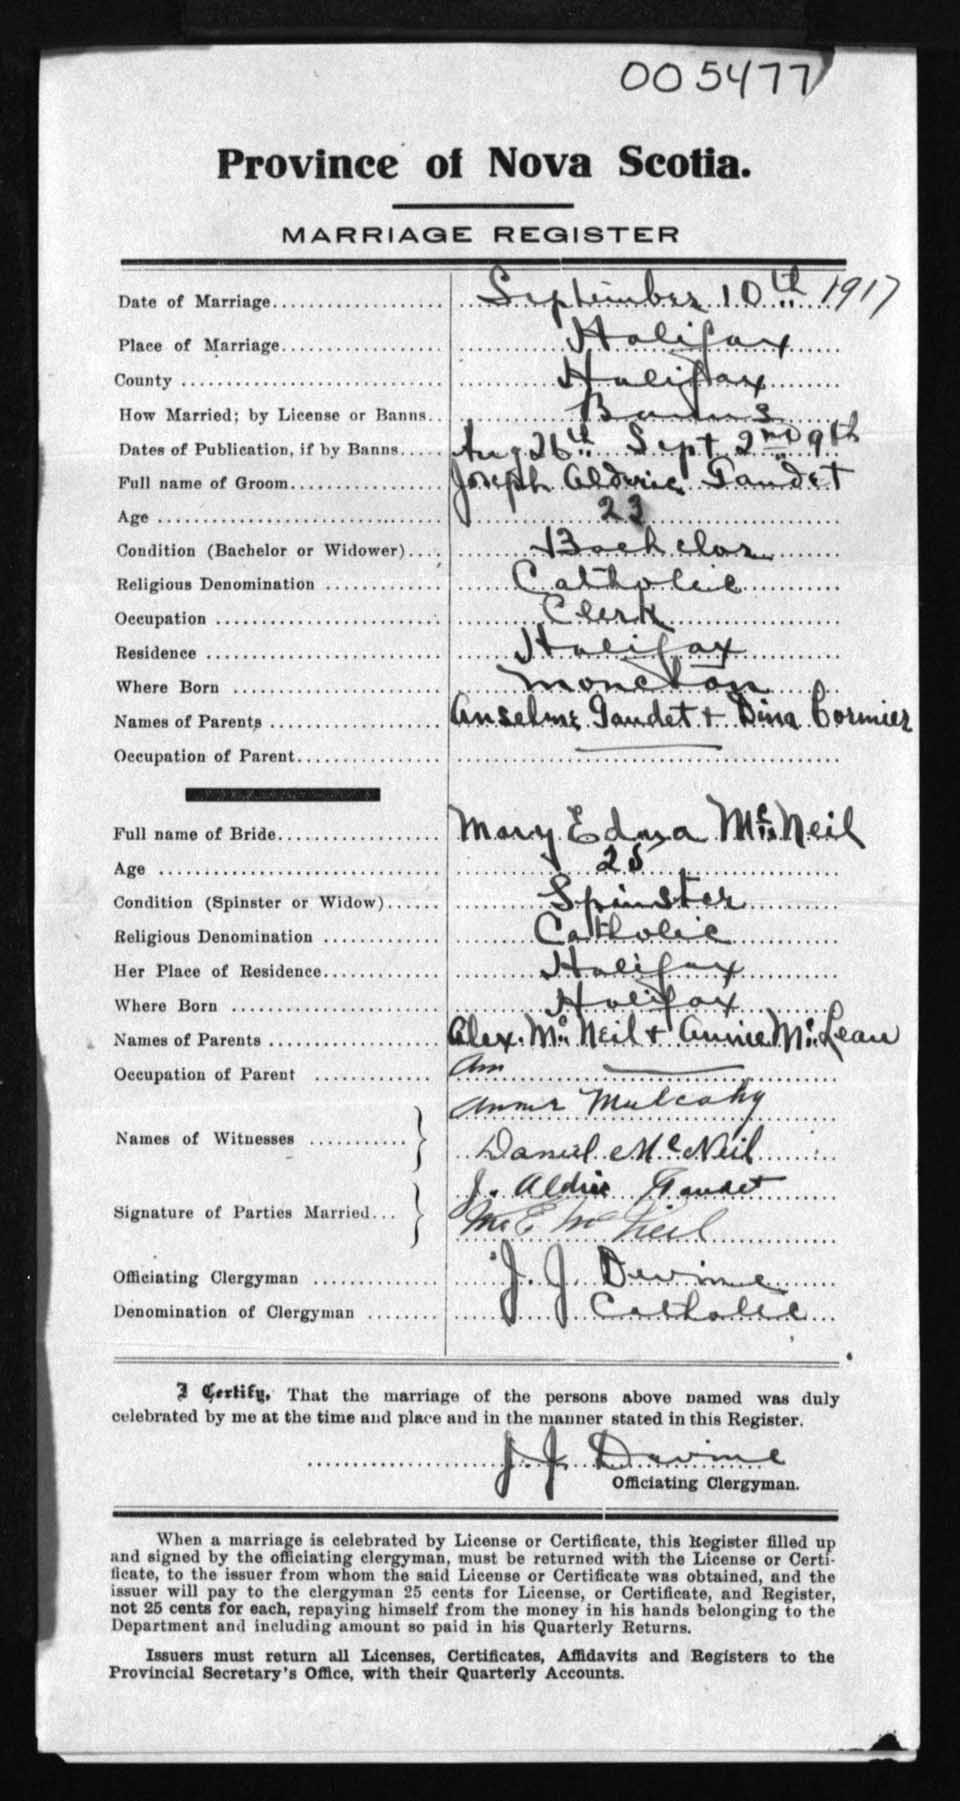 005477
Province of Nova Scotia.
MARRIAGE REGISTER
Date of Marriage September 10th 1917
Place of Marriage Halifax
County Halifax
How Married; by License or Banns Banns
Dates of Publication, if by Banns Aug 26th Sept 2nd 9th
Full name of Groom Joseph Alderic Gaudet
Age 23
Condition (Bachelor or Widower) Bachelor
Religious Denomination Catholic
Occupation Clerk
Residence Halifax
Where Born Moncton
Names of Parents Anselme Gaudet + Dina Cormier
Occupation of Parent
Full name of Bride Mary Edna McNeil
Age 25
Condition (Spinster or Widow) Spinster
Religious Denomination Catholic
Her Place of Residence Halifax
Where Born Halifax
Names of Parents Alex. McNeil + Annie McLean
Occupation of Parent Ann
Mulcahy
Names of Witnesses
Daniel McNeil
J. Aldric Gaudet
Signature of Parties Married
M. E. McNeil
Officiating Clergyman J. J. Devine
Denomination of Clergyman Catholic
I Certify, That the marriage of the persons above named was duly
celebrated by me at the time and place and in the manner stated in this Register.
J. J. Devine
Officiating Clergyman.
When a marriage is celebrated by License or Certificate, this Register filled up
and signed by the officiating clergyman, must be returned with the License or Certi-
ficate, to the issuer from whom the said License or Certificate was obtained, and the
issuer will pay to the clergyman 25 cents for License, or Certificate, and Register,
not 25 cents for each, repaying himself from the money in his hands belonging to the
Department and including amount so paid in his Quarterly Returns.
Issuers must return all Licenses, Certificates, Affidavits and Registers to the
Provincial Secretary's Office, with their Quarterly Accounts.